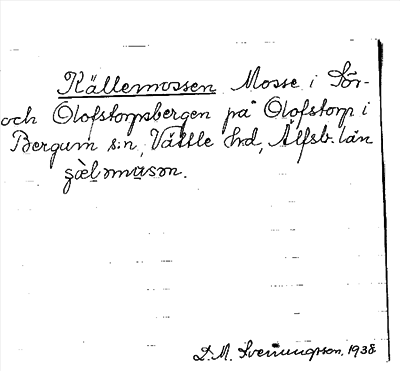 Källemossen Mosse i Sör-
och Olofstorpsbergen på Olofstorp i
Bergum s:n, Vättle hrd, Älfsb. län
D. M. Svenungsson, 1938